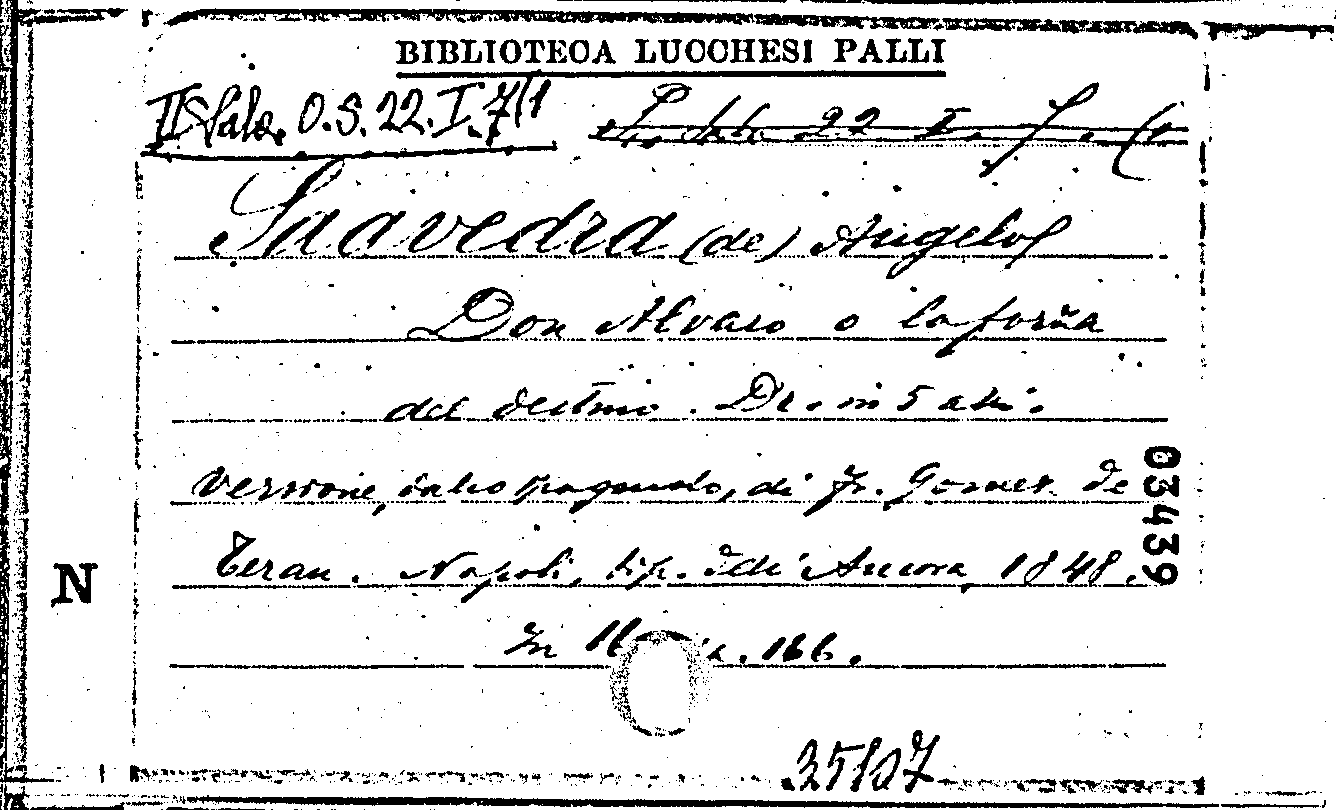 BIBLIOTECA LUCCHESI PALLI
II Sala. O.S. 22. I. 7/1
22 I. 7. (1
Saavedra (de) Angelo
Don Alvaro o la forza
del destino. Dr. in 5 atti.
versione, dallo spagnuolo, di Fr. Gomez de
Teran. Napoli, tip. dell' Ancora, 1848.
In 16 . 166.
03439
N
35107